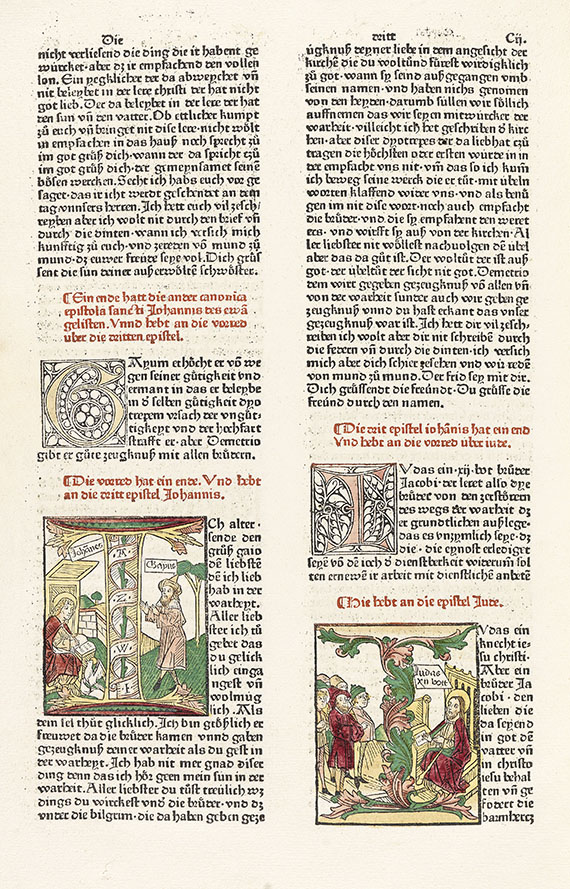 Die
nicht verliesend die ding die ir habent ge
würcket · aber dz ir empfachend den vollen
lon. Ein yegklicher der da abweychet vñ
nit beleybet in der lere christi der hat nicht
got lieb. Der da beleybet in der lere der hat
den sun vñ den vatter. Ob ettlicher kumpt
zů euch vñ bringet nit dise lere · nicht wölt
in empfachen in das hauß noch sprecht zů
im got grüß dich · wann der da spricht zů
im got grüß dich · der gemeynsamet seinē
bösen wercken. Secht ich habs euch vor ge
saget · das ir icht werdt geschendet an dem
tag vnsers herren. Ich hett euch vil zesch/
reyben aber ich wolt nit durch den brief vñ
durch die dinten · wann ich versich mich
kunfftig zů euch · vnd zereden vō mund zů
mund · dz ewer freüde seye vol. Dich grüs
sent die sun deiner außerwölten schwöster.
¶Ein ende hatt die ander canonica
epistola sancti Johannis des ewā
gelisten. Vnnd hebt an die vorred
über die dritten epistel.
GAyum erhöcht er vō we
gen seiner gütigkeit vnd
ermant in das er beleybe
in d selben gütigkeit dyo
trepem vrsach der vngüt
tigkeyt vnd der hochfart
strafft er · aber Demetrio
gibt er gůte zeugknuß mit allen brüdern.
¶Die vorred hat ein ende. Vnd hebt
an die dritt epistel Johannis.
Johānes
Gayus
A
Z
W
I
Ch alter ·
sende den
grüß gaio
dē liebstē
dē ich lieb
hab in der
warheyt.
Aller lieb
ster ich tů
gebet das
du gelick
lich einga
ngest vñ
wolmüg
lich. Als
dein sel thůt glicklich. Ich bin größlich er
freuwet da die brüder kamen vnnd gaben
gezeugknuß deiner warheit als du gest in
der warheyt. Ich hab nit mer gnad diser
ding denn das ich hör geen mein sun in der
warheit. Aller liebster du tůst treülich wz
dings du wirckest vnd die brüder · vnd dz
vnder die bilgrim · die da haben geben geze
dritt
Cij.
ügknuß deyner liebe in dem angesicht der
kirchē die du woltůnd fürest wirdigklich
zů got · wann sy seind außgegangen vmb
seinen namen · vnd haben nichs genomen
von den heyden · darumb süllen wir söllich
auffnemen das wir seyen mitwürcker der
warheit · villeicht ich het geschriben d kirc
hen · aber diser dyotrepes der da liebhat czů
tragen die höchsten oder ersten würde in in
der empfacht vns nit · vm̄ das so ich kum̄
ich beweg seine werck die er tůt · mit übeln
worten klaffend wider vns · vnd als benü
gen im nit dise wort · noch auch empfacht
die brüder · vnd die sy empfahent den weret
ers · vnd wirfft sy auß von der kirchen. Al
ler liebster nit wöllest nachuolgen dē übel
aber das da gůt ist. Der woltůt der ist auß
got · der übeltůt der sicht nit got. Demetrio
dem wirt gegeben gezeugknuß vō allen vñ
von der warheit sunder auch wir geben ge
zeugknuß vnnd du hast erkant das vnser
gezeugknuß war ist. Ich hett dir vil zesch/
reiben ich wolt aber dir nit schreibē durch
die federn vñ durch die dinten · ich versich
mich aber dich schier zesehen vnd wir redē
von mund zů mund. Der frid sey mit dir.
Dich grüssend die freünd · Du grüsse die
freünd durch den namen.
¶Die drit epistel iohānis hat ein end
Vnd hebt an die vorred über iude.
IVdas ein · xij · bot brůder
Jacobi · der leret also dye
brüder von den zerstörern
des wegs der warheit dz
er grundtlichen außlege ·
das es vnzymlich seye · dz
die · die eynost erlediget
seyē vō dē ioch d dienstberkeit widerum̄ sol
ten ernewē ir arbeit mit dienstlichē anbetē
¶Hie hebt an die epistel Jude.
Judas
xij bott
IVdas ein
knecht ie/
su christi ·
Aber ein
brůder Ja
cobi · den
lieben die
da seyend
in got dē
vatter vñ
in christo
iesu behal
ten vñ ge
fodert die
barmhercz